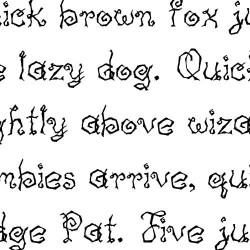 ick brown fox ju
e lazy dog. Quic
ghtly above wiza
mbies arrive, qui
dge Pat. Five ju